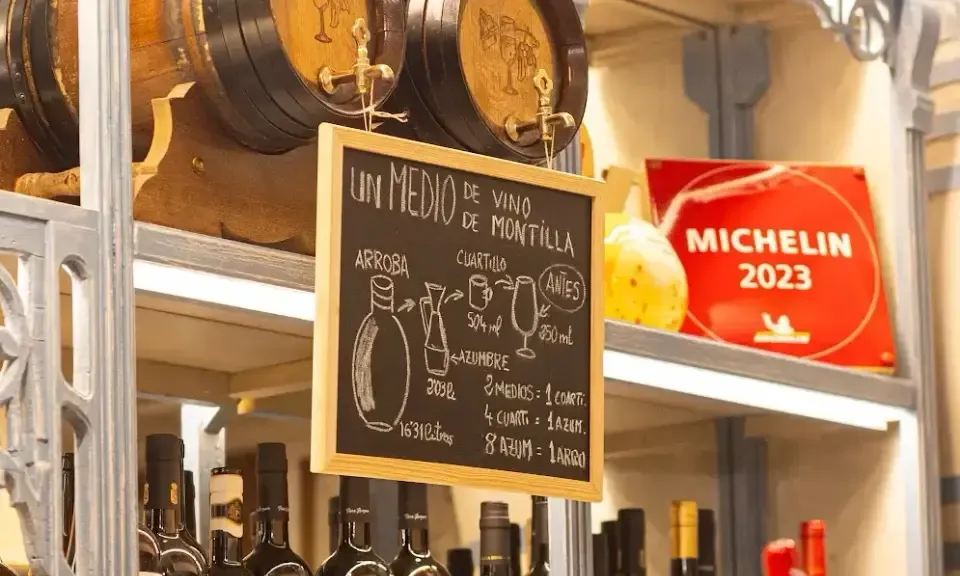 UN MEDIO DE VINO
DE MONTILLA
ARROBA
CUARTILLO
ANTES
504 ml
250 ml
AZUMBRE
2'03 l
16'31 litros
2 MEDIOS = 1 CUARTI.
4 CUARTI = 1 AZUM.
8 AZUM = 1 ARRO
MICHELIN
2023
MICHELIN